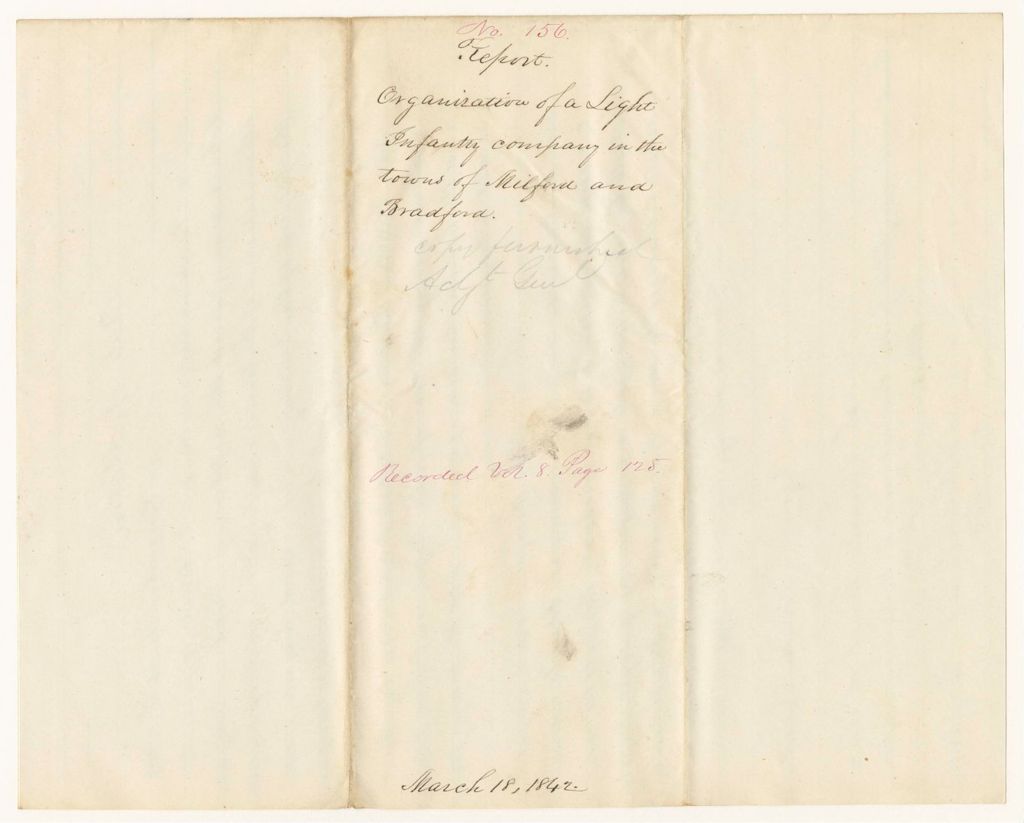 No. 156.
Report.
Organization of a Light
Infantry company in the
towns of Milford and
Bradford.
copy furnished
Adjt Genl
Recorded Vol. 8. Page 125.
March 18, 1842.